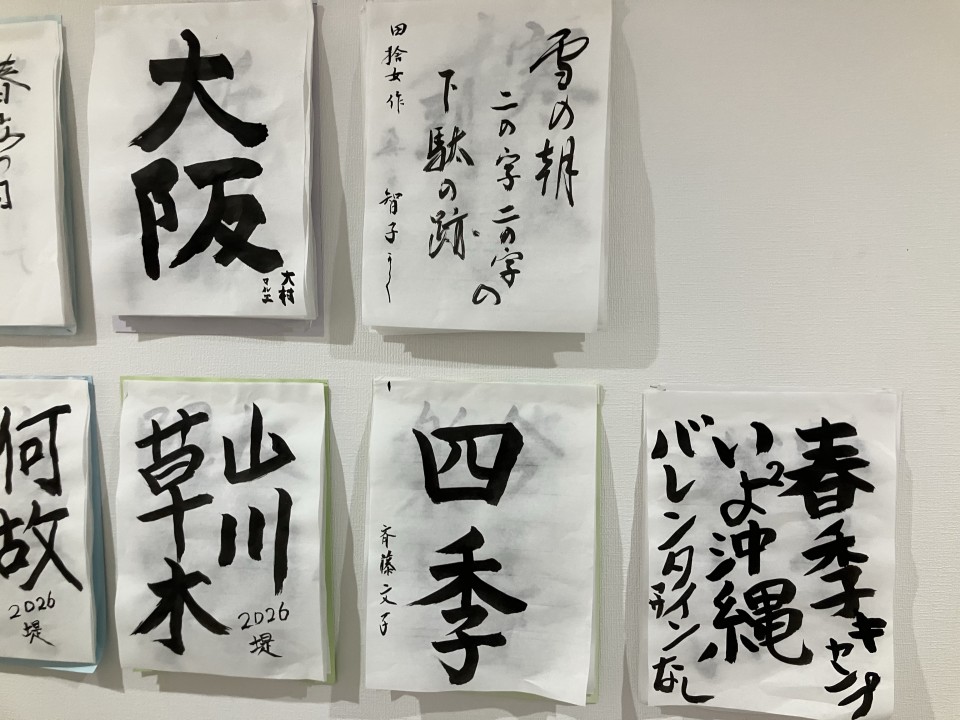 大阪
大村
雪の朝
二の字二の字の
下駄の跡
田捨女作
智子
何故
2026
堤
山川
草木
2026
堤
四季
斉藤文子
春季キャンプ
い²よ沖縄
バレンタインなし